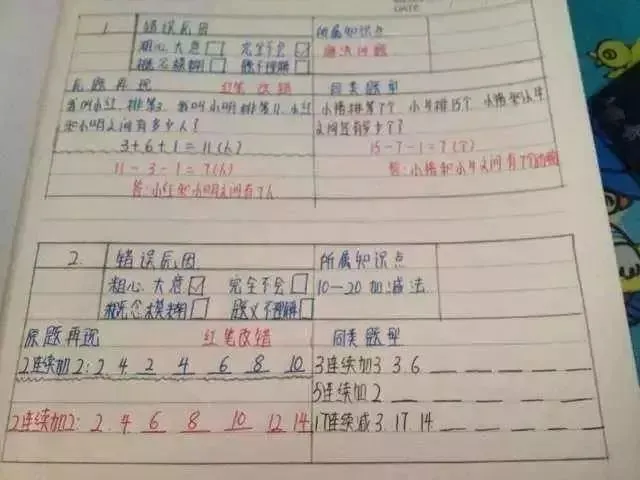 DATE
1 错误原因 所属知识点
粗心大意 完全不会 ✓ 排法问题
概念模糊 题不理解
原题再现 红笔改错 同类题型
我叫小红,排第3,我叫小明排第11,小红 小猪排第7个 小牛排15个 小猪和小牛
和小明之间有多少人? 之间有多少个?
3+6+1=11(人) 15-7-1=7(个)
11-3-1=7(人) 答:小猪和小牛之间有7个动物
答:小红和小明之间有7人
2. 错误原因 所属知识点
粗心大意 ✓ 完全不会 10—20加减法
概念模糊 题义不理解
原题再现 红笔改错 同类题型
2连续加2: 2 4 2 4 6 8 10 3连续加3 3 6
5连续加2
2连续加2: 2 4 6 8 10 12 14 17连续减3 17 14